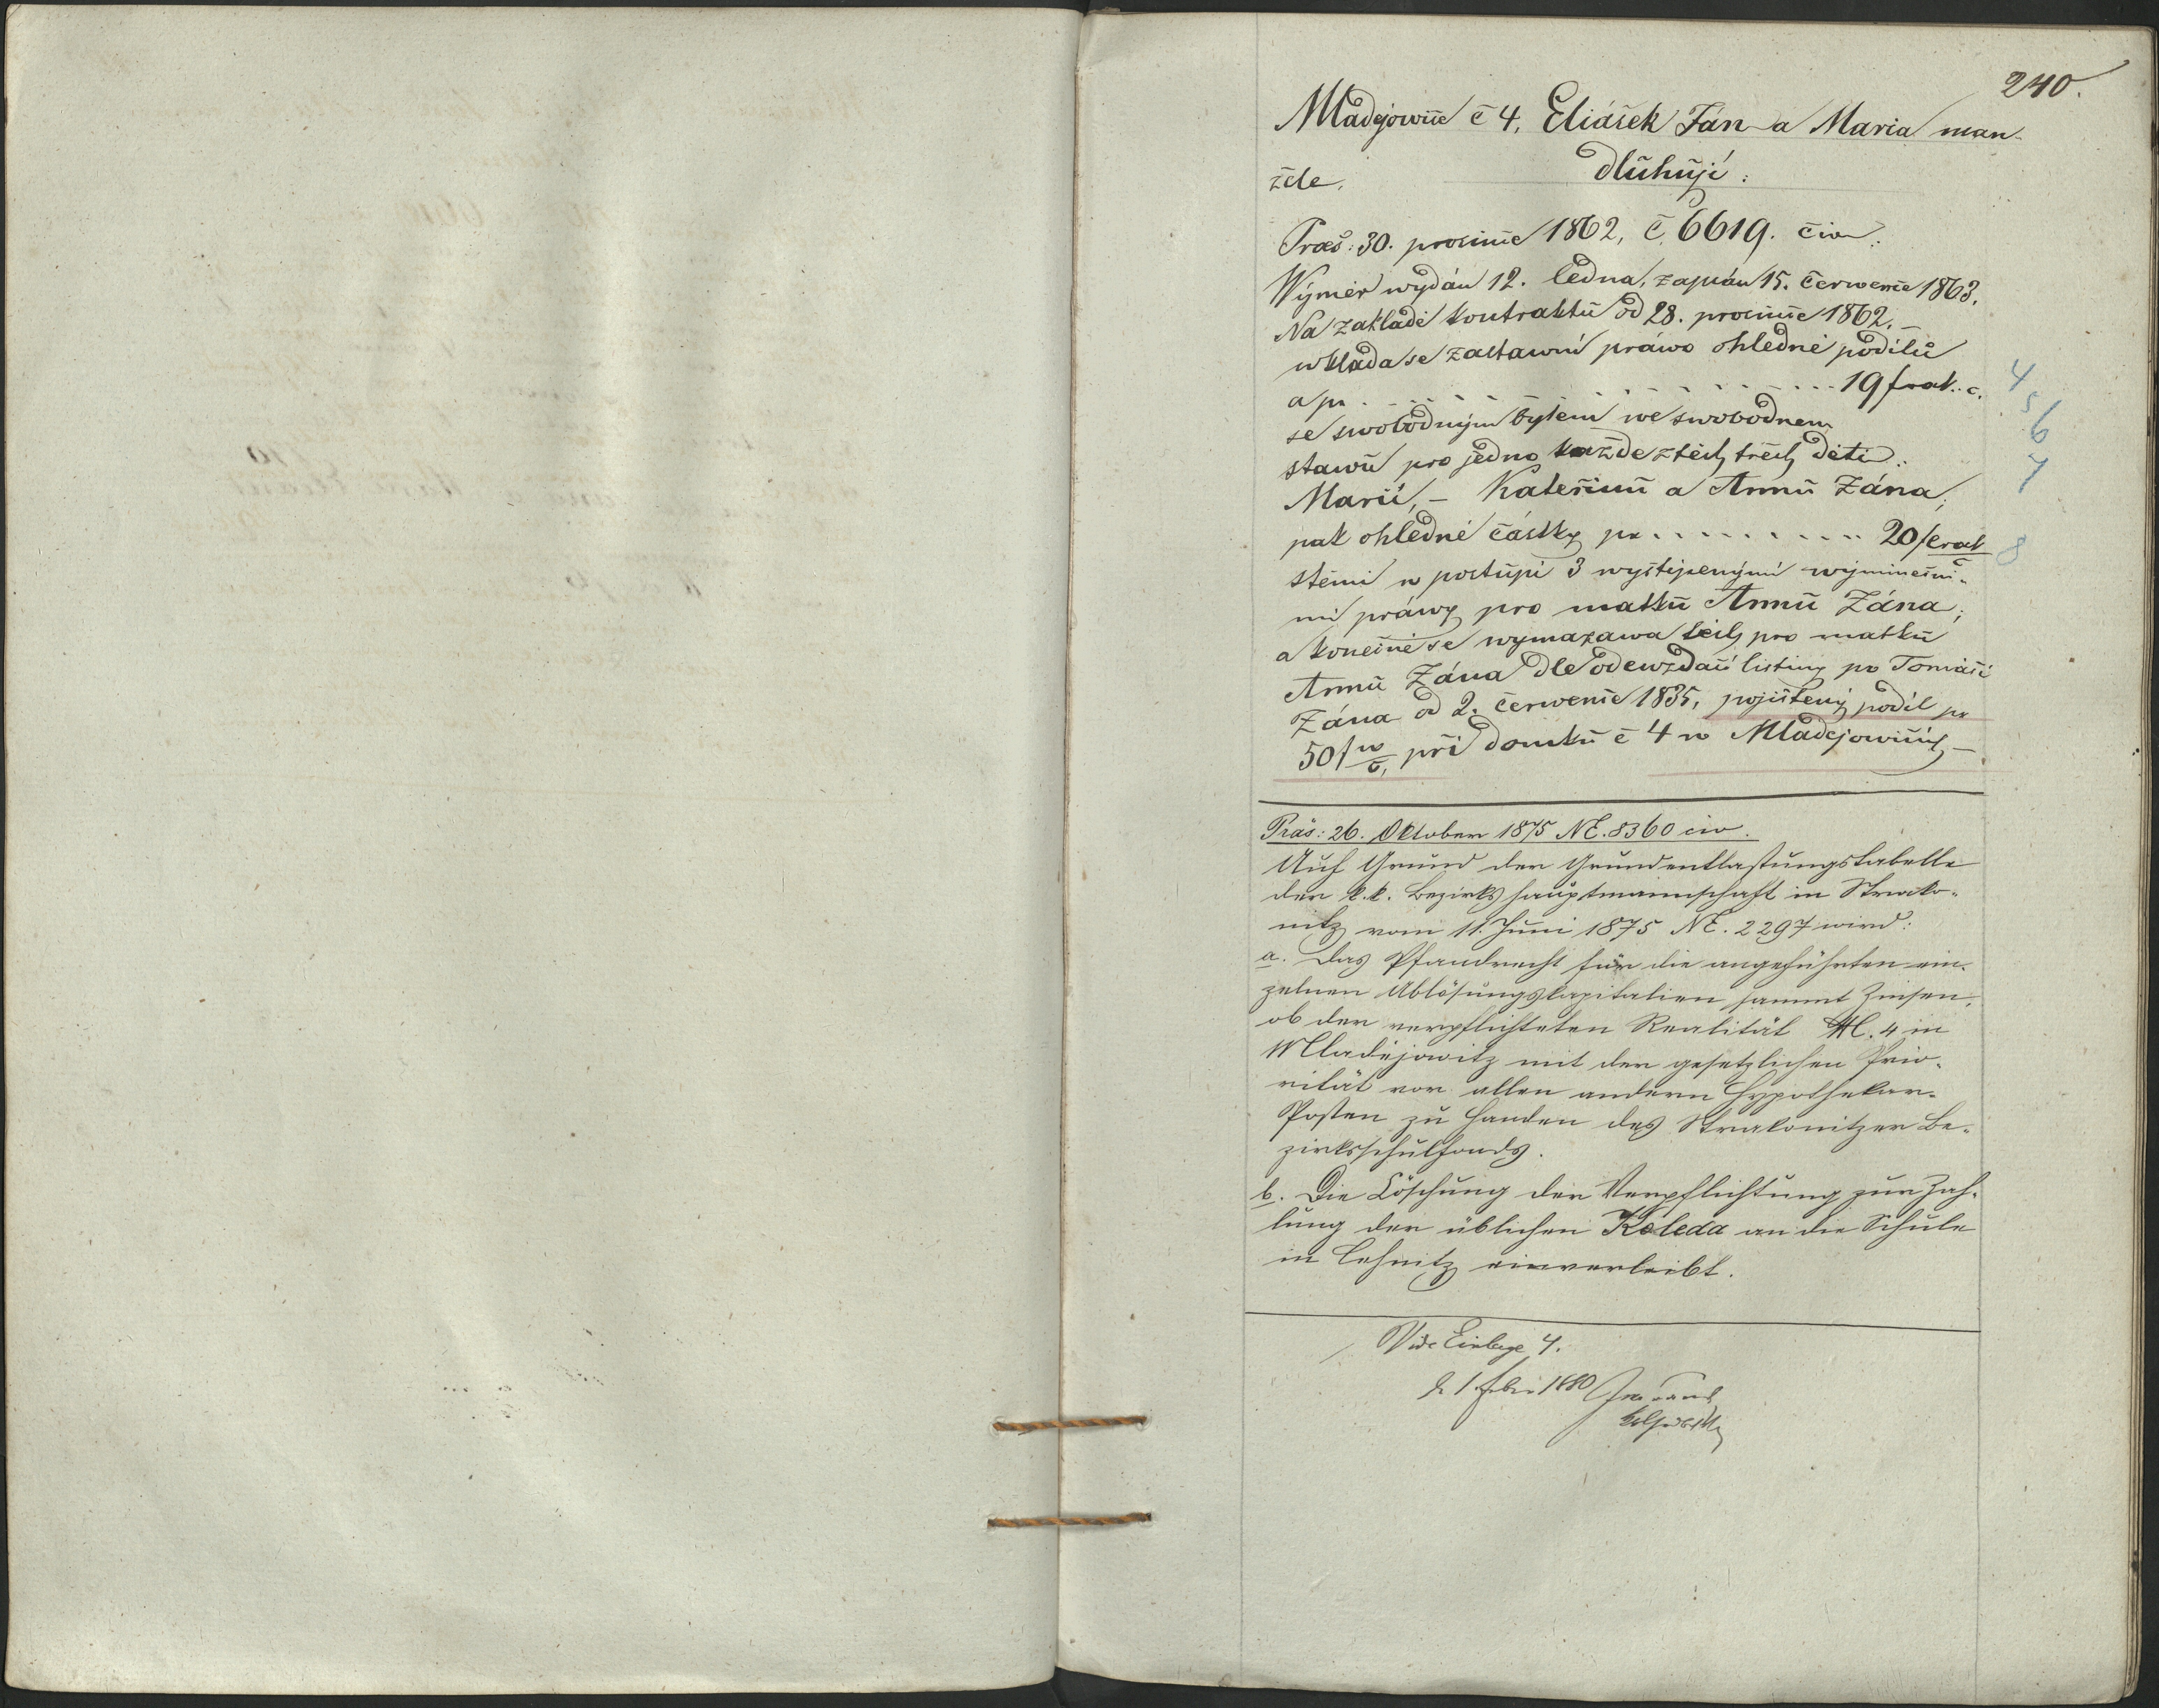 240.
Mladějowice č 4, Eliášek Ján a Maria man-
žele, dluhují:
Præs: 30. prosince 1862, č. 6619. civ.
Wýměr wydán 12. ledna, zapsán 15. července 1863.
Na zakladě kontraktů od 28. prosince 1862. –
wklada se zastawní práwo ohledně podílů
a pr. . . . . . . . . . . . 19 f rak. č. 4
5
se swobodným bytem we swobodnem 6
stawu pro jedno každe z těch třech dětí: 7
Marii, – Kateřinu a Annu Zána;
pak ohledně částky pr . . . . . . . . . 20 f erak 8
stěmi w postupi 3 wyštipenými wýminečni-
mi práwy pro matku Annu Zána;
a konečně se wymazawa těch pro matku
Annu Zána dle odewzdací listiny po Tomáši
Zána od 2. července 1835, pojištený podíl pr
50 f w č, při domku č 4 w Mladejowicích, –
Präs: 26. Oktober 1875 NE. 8360 civ.
Auf Grund der Grundentlastungstabelle
der k. k. Bezirkshauptmannschaft in Strako-
nitz vom 11. Juni 1875 NE. 2297 wird:
a. Das Pfandrecht für die angeführten ein-
zelnen Ablösungskapitalien sammt Zinsen,
ob der verpflichteten Realität N. 4 in
Mladějowitz mit der gesetzlichen Prio-
rität vor allen andern Hypothekar-
Posten zu Handen des Strakonitzer Be-
zirksschulfonds.
b. Die Löschung der Verpflichtung zur Zah-
lung der üblichen Koleda an die Schule
in Cehnitz einverleibt.
Vide Einlage 4.
1 Feber 1880